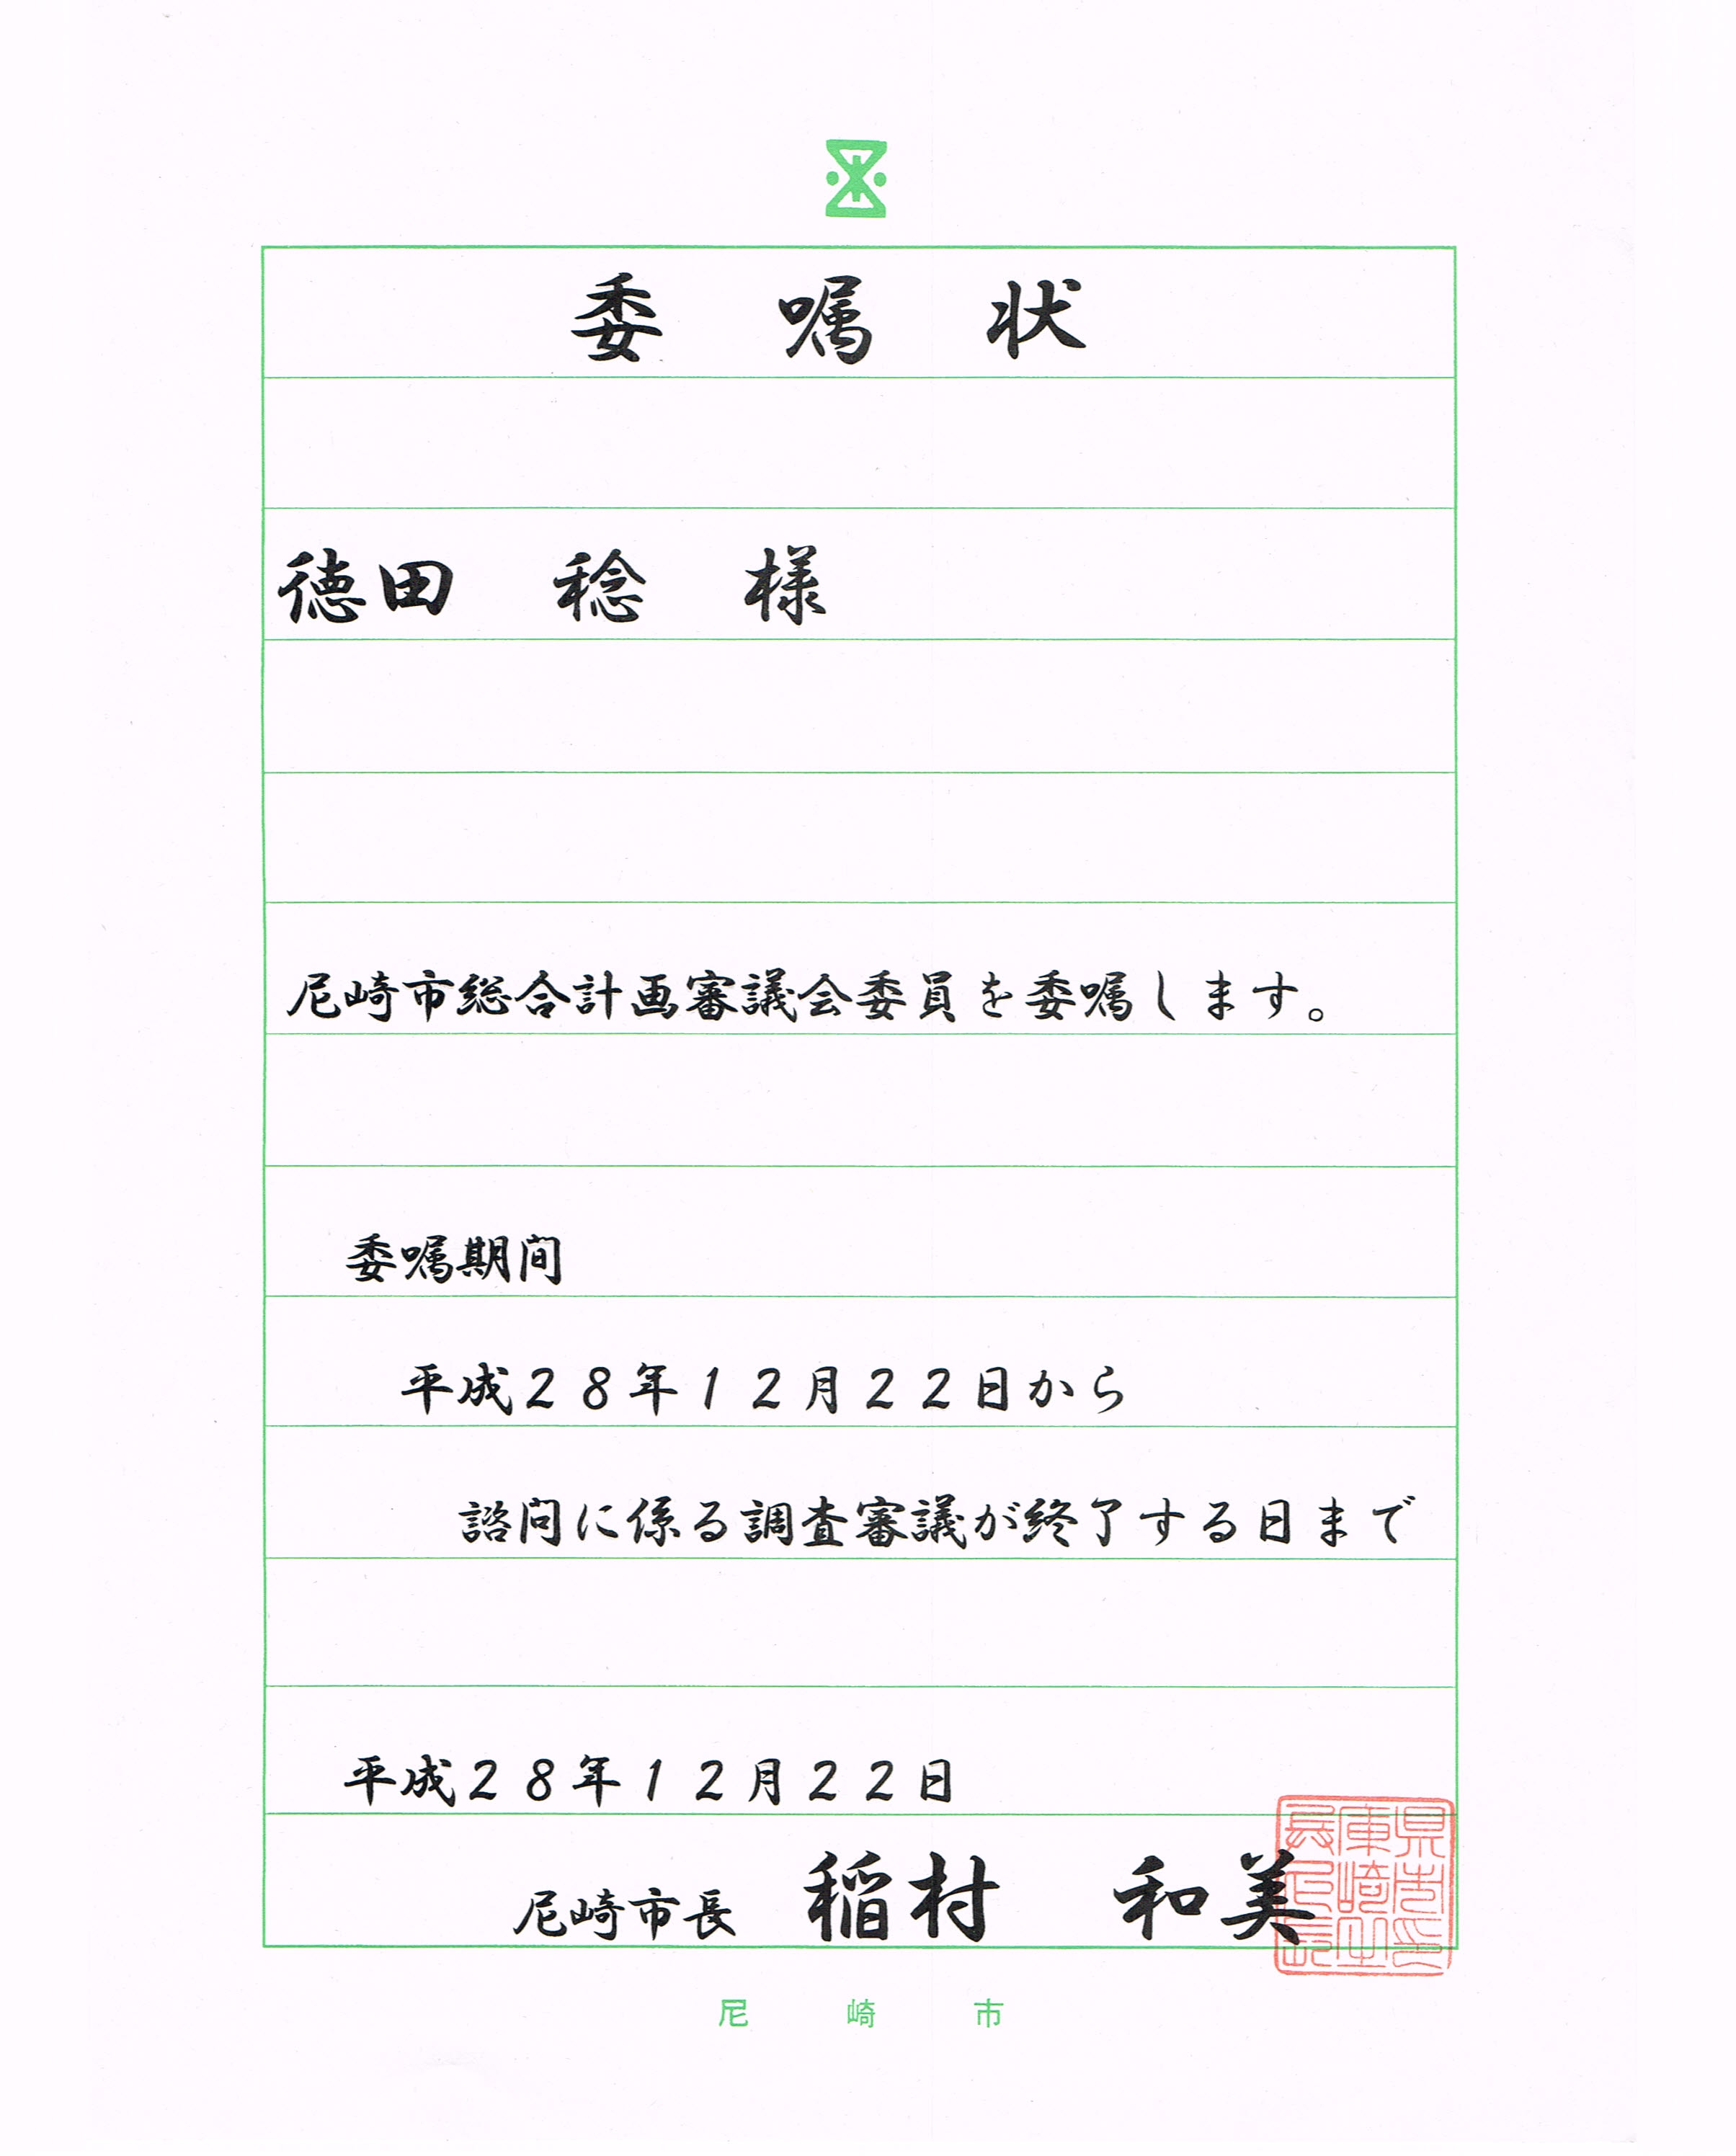 委 嘱 状
徳田 稔 様
尼崎市総合計画審議会委員を委嘱します。
委嘱期間
平成28年12月22日から
諮問に係る調査審議が終了する日まで
平成28年12月22日
尼崎市長 稲村 和美
尼 崎 市